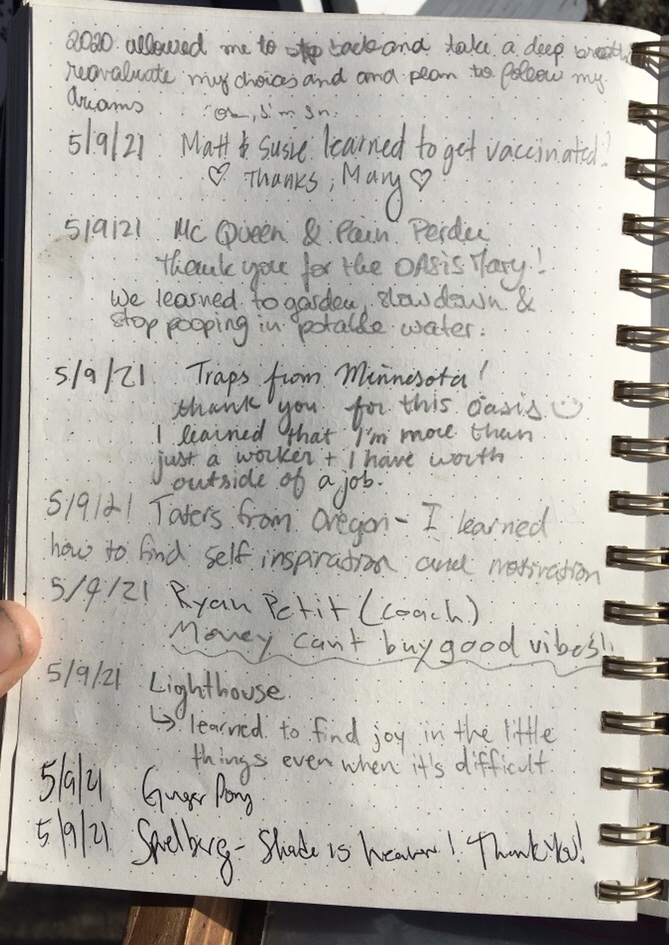 2020 allowed me to stop back and take a deep breath,
reavaluate my choices and and plan to follow my
dreams
5/9/21 Matt & Susie learned to get vaccinated!
♡ Thanks, Mary ♡
5/9/21 McQueen & Pain Perdue
Thank you for the OASIS Mary!
We learned to garden, slow down &
stop pooping in potable water.
5/9/21 Traps from Minnesota!
thank you for this oasis ☺
I learned that I'm more than
just a worker + I have worth
outside of a job.
5/9/21 Taters from Oregon - I learned
how to find self inspiration and motivation
5/9/21 Ryan Petit (coach)
Money can't buy good vibes!!
5/9/21 Lighthouse
↳ learned to find joy in the little
things even when it's difficult
5/9/21 Ginger Pony
5/9/21 Spielburg - Shade is heaven! Thank You!